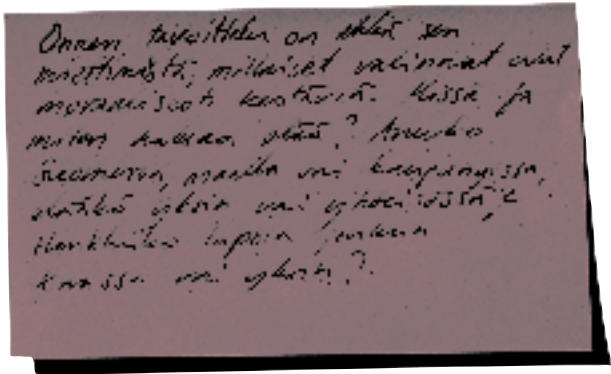 Onnen tavoittelu on ehkä sen
miettimistä, millaiset valinnat ovat
moraalisesti kestäviä. Missä ja
miten haluaa elää? Asuuko
Suomessa, maalla vai kaupungissa,
yksin vai yhteisössä,
lapsia jonkun
kanssa vai yksin?